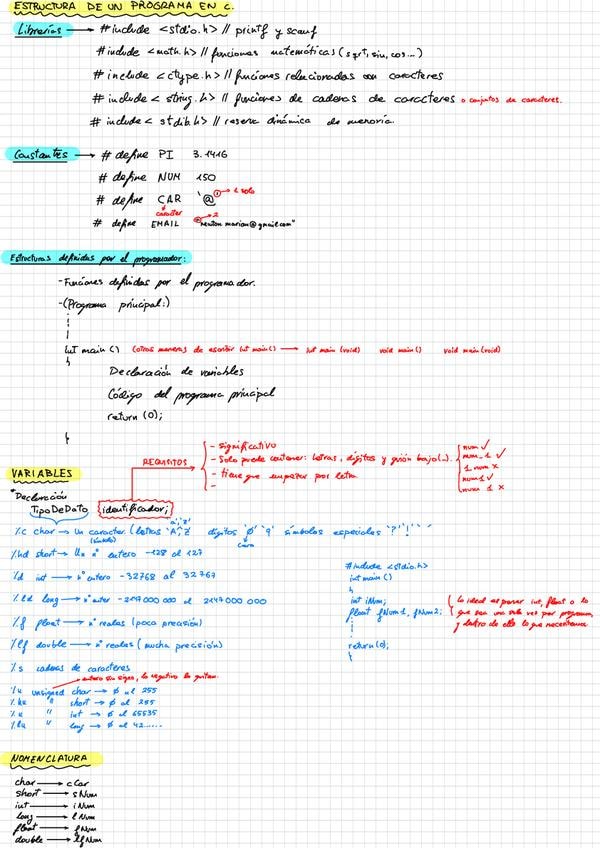 ESTRUCTURA DE UN PROGRAMA EN C.
Librerías → # include <stdio.h> // printf y scanf
# include <math.h> // funciones matemáticas (sqrt, sin, cos...)
# include <ctype.h> // funciones relacionadas con caracteres
# include < string.h> // funciones de cadenas de caracteres o conjuntos de caracteres.
# include < stdib.h> // reserva dinámica de memoria.
Constantes → # define PI 3.1416
# define NUM 150
# define CAR '@' → 1 solo
caracter
# define EMAIL → 2
marian@gmail.com"
Estructuras definidas por el programador:
- Funciones definidas por el programador.
- (Programa principal:)
int main () (otras maneras de escribir int main() → int main (void) void main () void main (void)
{
Declaración de variables
Código del programa principal
return (0);
}
- significativo
REQUISITOS - Solo puede contener: letras, dígitos y guión bajo (_).
- tiene que empezar por letra
-
num ✓
num_1 ✓
1 num x
num1 ✓
num 1 x
VARIABLES
*Declaración
TipoDeDato identificador;
'a', 'z'
%c char → Un caracter (letras 'A', 'Z' dígitos '0' '9' símbolos especiales '?' '!' ' '
(símbolo) cero
%hd short → Un nº entero -128 al 127
%d int → nº entero -32768 al 32767
%ld long → nº enter -2147 000 000 al 2147 000 000
%f float → nº reales (poca precisión)
%lf double → nº reales (mucha precisión)
%s cadenas de caracteres
entero sin signo, lo negativo lo quitan.
%u unsigned char → 0 al 255
%hu " short → 0 al 255
%u " int → 0 al 65535
%lu " long → 0 al 42......
#include <stdio.h>
int main ()
{
int iNum;
float fNum1, fNum2;
return (0);
}
lo ideal es poner int, float o lo
que sea una sola vez por programa,
y dentro de ello lo que necesitemos
NOMENCLATURA
char → cCar
short → sNum
int → iNum
long → lNum
float → fNum
double → lfNum